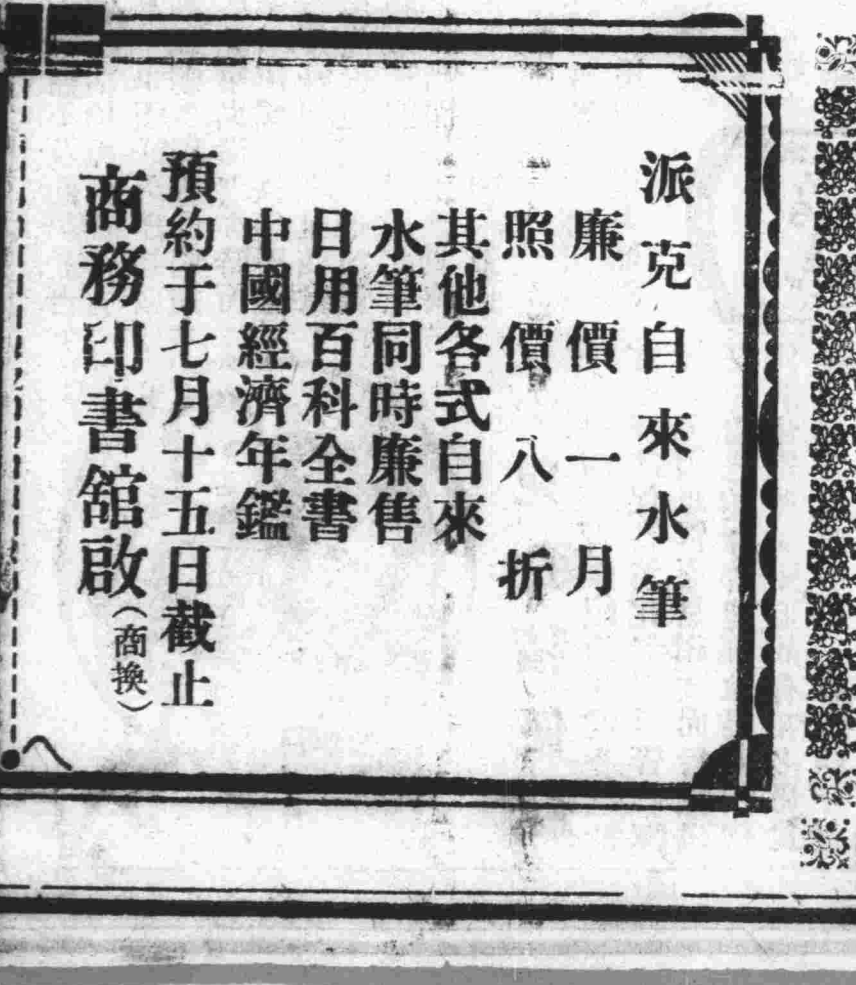 派克自來水筆
廉價一月
照價八折
其他各式自來
水筆同時廉售
日用百科全書
中國經濟年鑑
預約于七月十五日截止
商務印書館啟(商換)